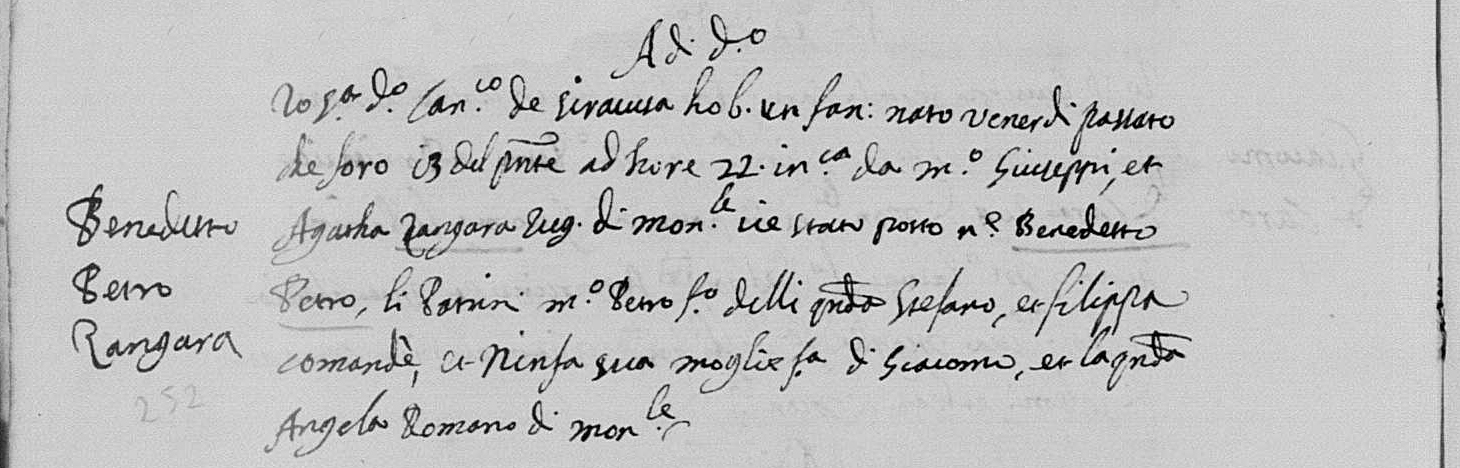 Adi d.o
Io S.r d.o Can.co de Siracusa ho b. un fan: nato venerdi passato
che foro 13 del pnte ad hore 22. in c.a da m.o Giuseppi, et
Agatha Zangara Iug. di mon.le vie stato posto n.e Benedetto
Petro, li Patrini m.o Petro f.o delli qndā Stefano, et filippa
comandè, et Ninfa sua moglie f.a di Giacomo, et la qndā
Angela Romano di mon.le
Benedetto
Petro
Zangara
252